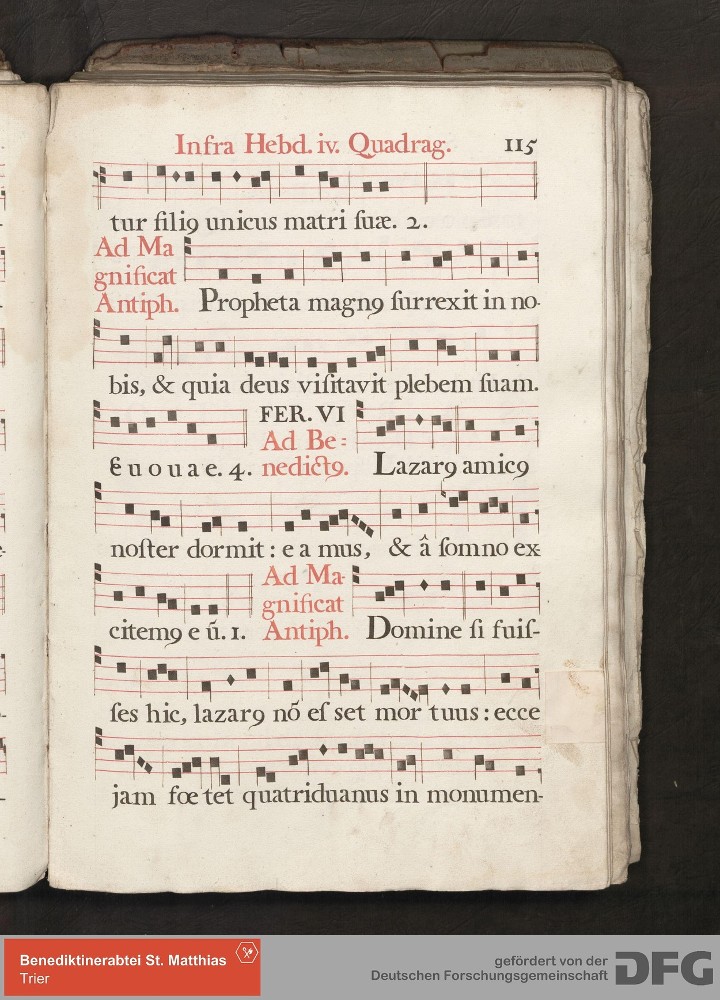 Infra Hebd. iv. Quadrag. 115
tur filiꝰ unicus matri ſuæ. 2.
Ad Ma
gnificat
Antiph. Propheta magnꝰ ſurrexit in no-
bis, & quia deus viſitavit plebem ſuam.
E u o u a e. 4.
FER. VI
Ad Be=
nedictꝰ. Lazarꝰ amicꝰ
noſter dormit: e a mus, & â ſomno ex-
citemꝰ e ũ. 1.
Ad Ma-
gnificat
Antiph. Domine ſi fuiſ-
ſes hic, lazarꝰ nõ eſ set mor tuus: ecce
jam fœ tet quatriduanus in monumen-
Benediktinerabtei St. Matthias
Trier
gefördert von der
Deutschen Forschungsgemeinschaft
DFG